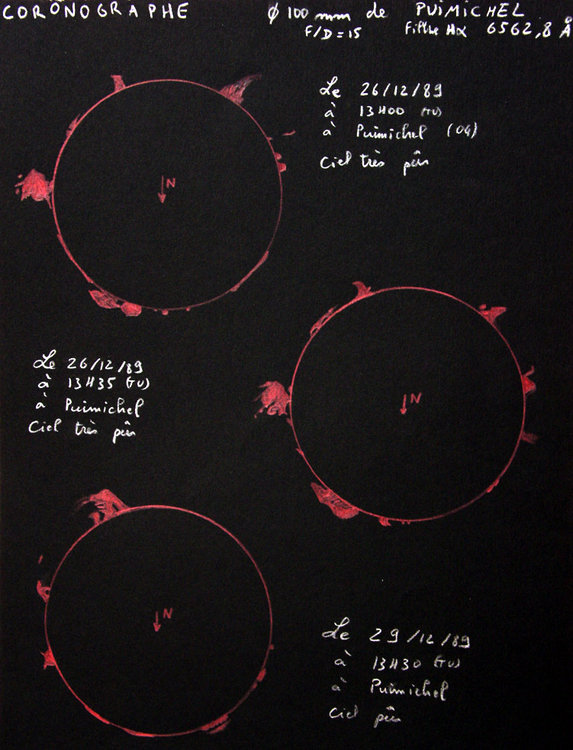 CORONOGRAPHE ϕ 100 mm de PUIMICHEL
F/D=15 Filtre Hα 6562,8 Å
Le 26/12/89
à 13H00 (TU)
à Puimichel (04)
Ciel très pur
N
N
Le 26/12/89
à 13H35 (TU)
à Puimichel
Ciel très pur
N
Le 29/12/89
à 13H30 (TU)
à Puimichel
Ciel pur